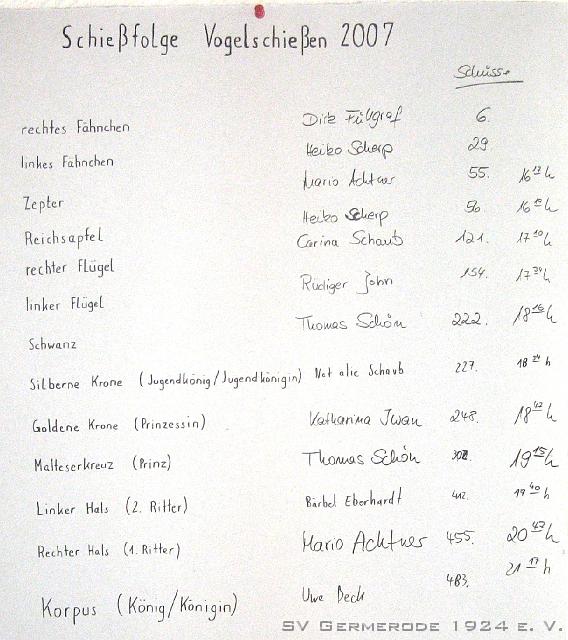 Schießfolge Vogelschießen 2007
Schüsse
rechtes Fähnchen Dirk Füllgraf 6.
linkes Fähnchen Heiko Scherp 29.
Zepter Mario Achtner 55. 16 13 h
Reichsapfel Heiko Scherp 56. 16 15 h
rechter Flügel Carina Schaub 121. 17 10 h
linker Flügel Rüdiger John 154. 17 34 h
Schwanz Thomas Schön 222. 18 16 h
Silberne Krone (Jugendkönig/Jugendkönigin) Natalie Schaub 227. 18 24 h
Goldene Krone (Prinzessin) Katharina Iwan 248. 18 42 h
Malteserkreuz (Prinz) Thomas Schön 302. 19 15 h
Linker Hals (2. Ritter) Bärbel Eberhardt 412. 19 40 h
Rechter Hals (1. Ritter) Mario Achtner 455. 20 47 h
Korpus (König/Königin) Uwe Beck 483. 21 17 h
SV Germerode 1924 e. V.